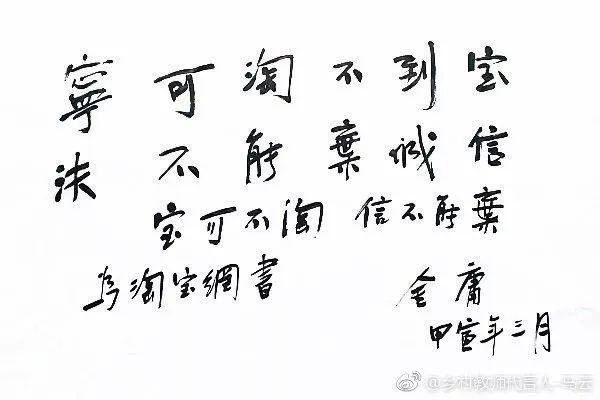 寧可淘不到宝
決不能棄诚信
宝可不淘 信不能棄
为淘宝網書
金庸
甲年三月
@乡村教师代言人-马云